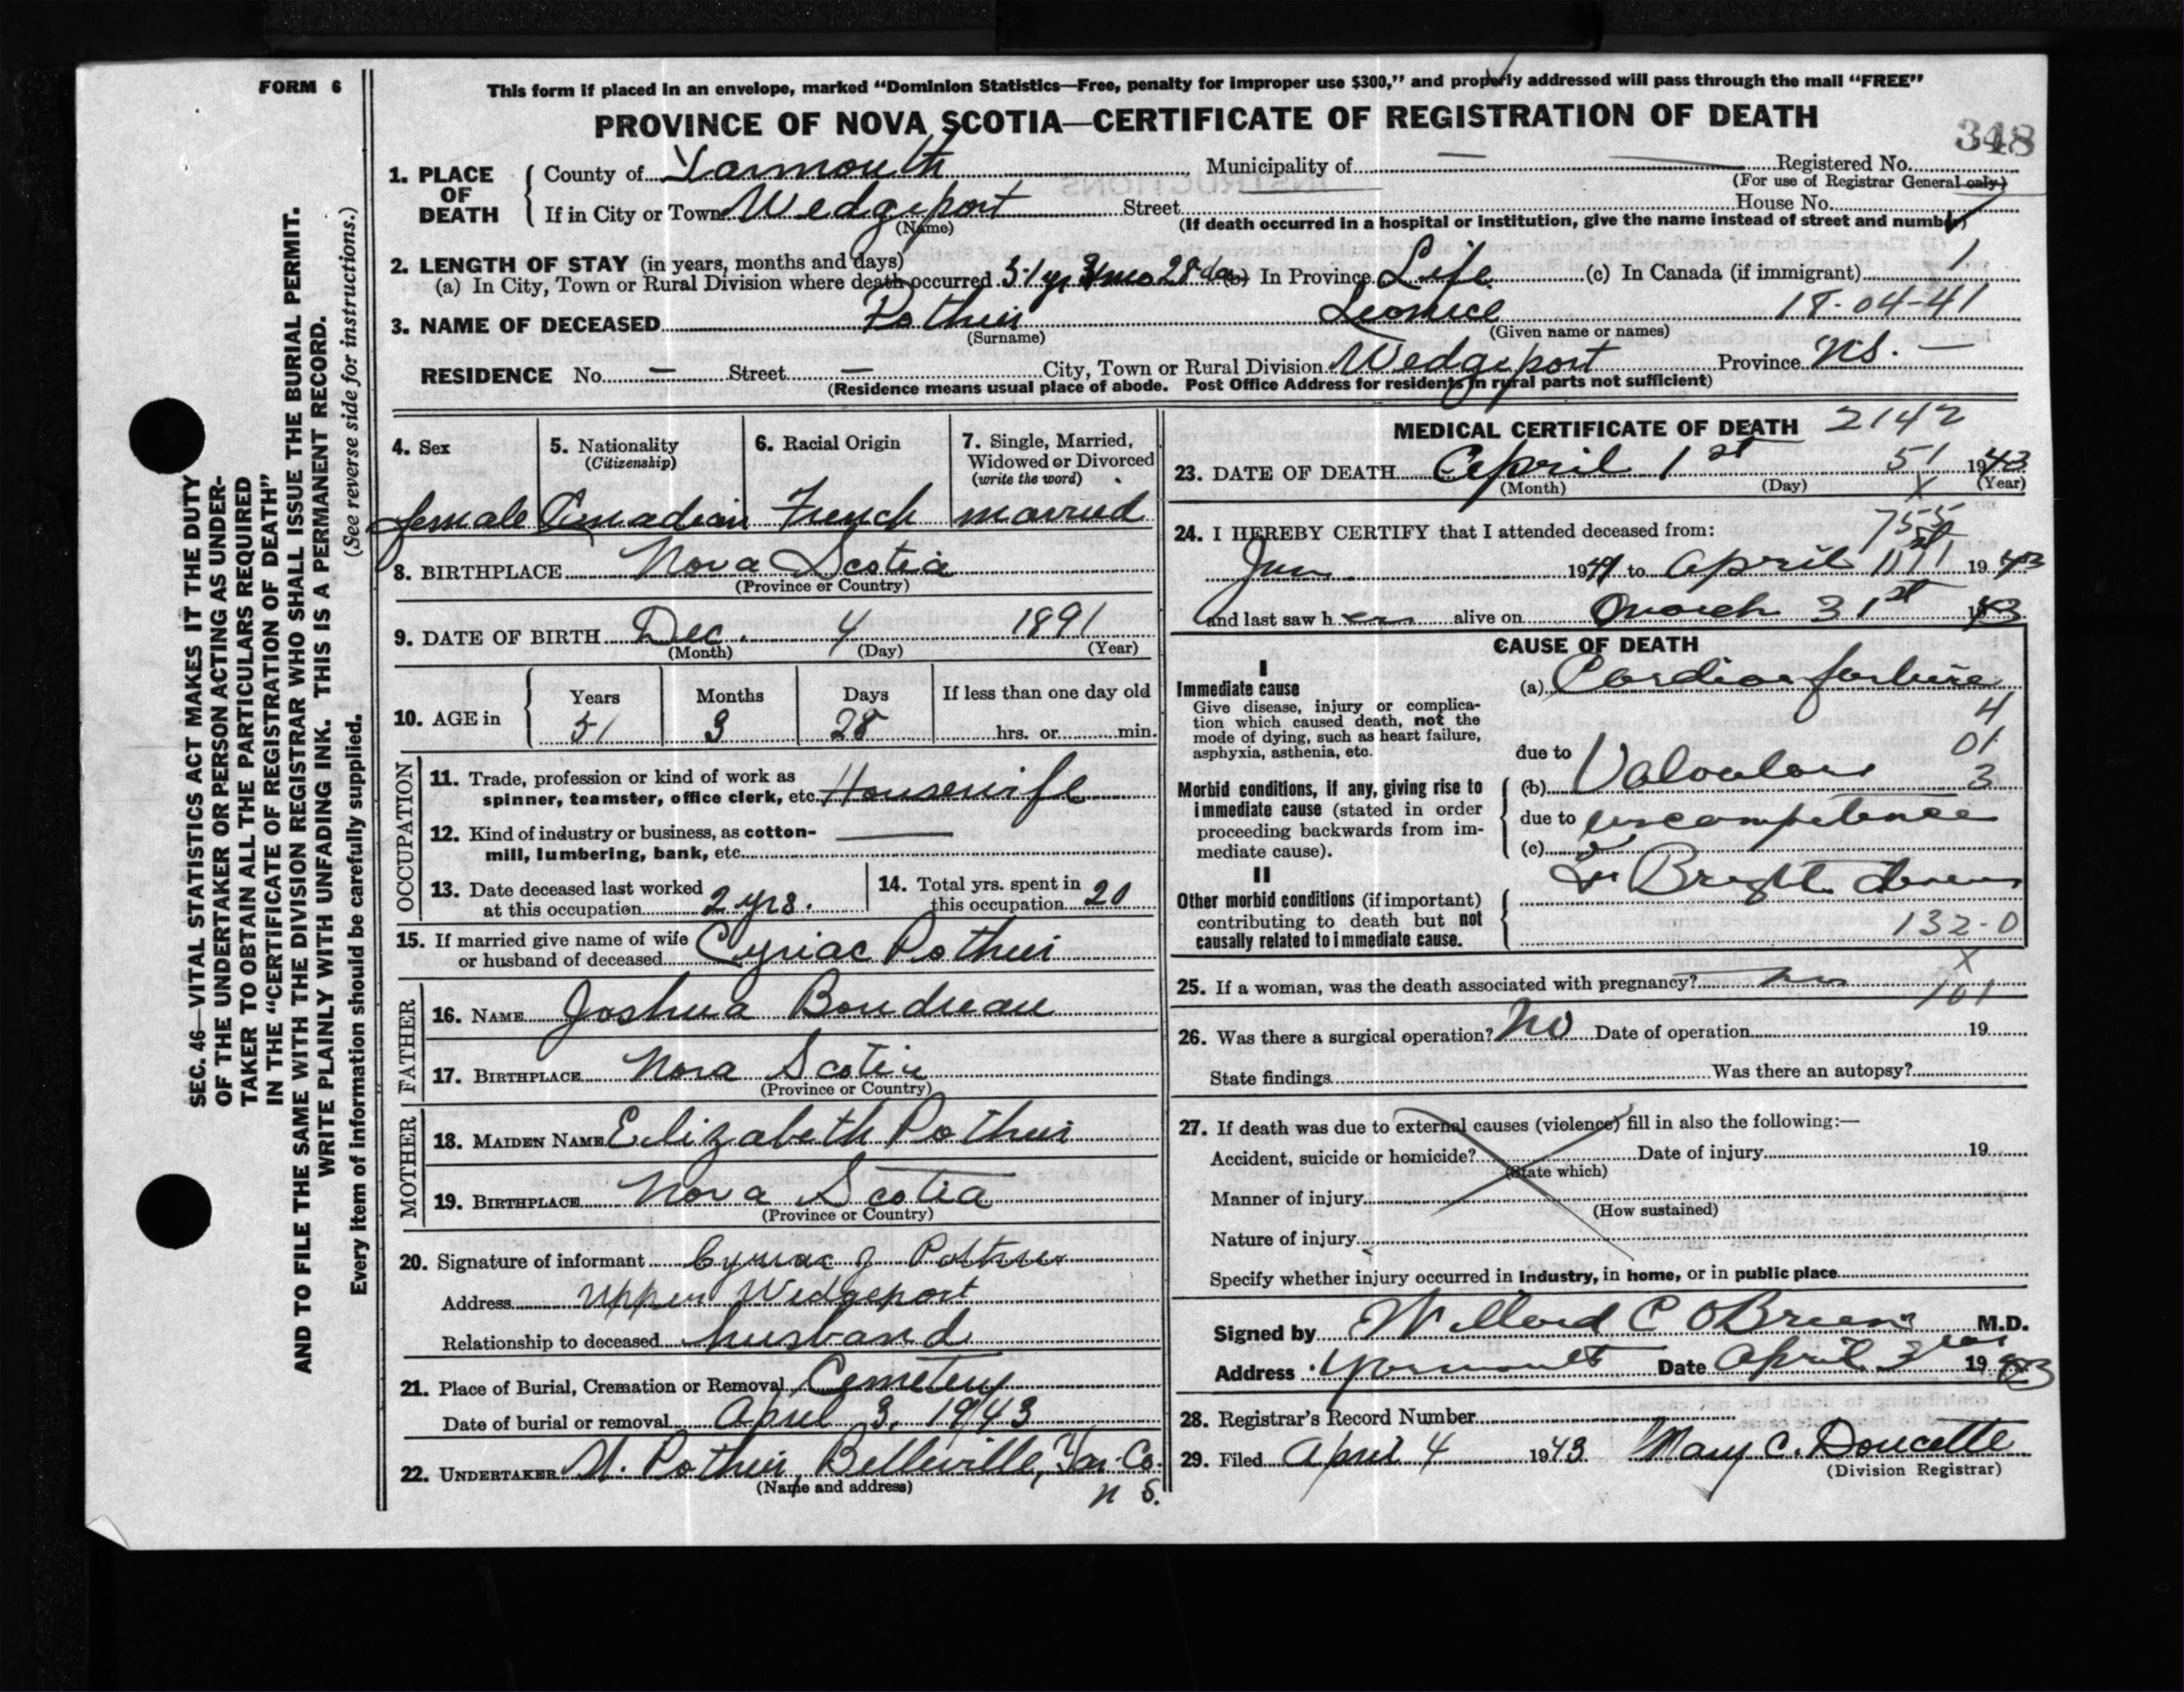 FORM 6
This form if placed in an envelope, marked "Dominion Statistics—Free, penalty for improper use $300," and properly addressed will pass through the mail "FREE"
PROVINCE OF NOVA SCOTIA—CERTIFICATE OF REGISTRATION OF DEATH
348
1. PLACE OF DEATH
County of Yarmouth Municipality of — Registered No.
(For use of Registrar General only)
If in City or Town Wedgeport Street House No.
(Name) (If death occurred in a hospital or institution, give the name instead of street and number)
2. LENGTH OF STAY (in years, months and days)
(a) In City, Town or Rural Division where death occurred 51 yr 3 mo 28 da (b) In Province Life (c) In Canada (if immigrant) 1
3. NAME OF DECEASED Pothier Leonice 18-04-41
(Surname) (Given name or names)
RESIDENCE No. — Street — City, Town or Rural Division Wedgeport Province N.S. —
(Residence means usual place of abode. Post Office Address for residents in rural parts not sufficient)
4. Sex 5. Nationality 6. Racial Origin 7. Single, Married,
(Citizenship) Widowed or Divorced
(write the word)
female Canadian French married
8. BIRTHPLACE Nova Scotia
(Province or Country)
9. DATE OF BIRTH Dec. 4 1891
(Month) (Day) (Year)
10. AGE in Years Months Days If less than one day old
51 3 28 hrs. or min.
OCCUPATION
11. Trade, profession or kind of work as
spinner, teamster, office clerk, etc. Housewife
12. Kind of industry or business, as cotton-
mill, lumbering, bank, etc.
13. Date deceased last worked
at this occupation 2 yrs.
14. Total yrs. spent in
this occupation 20
15. If married give name of wife
or husband of deceased Cyriac Pothier
FATHER
16. NAME Joshua Boudreau
17. BIRTHPLACE Nova Scotia
(Province or Country)
MOTHER
18. MAIDEN NAME Elizabeth Pothier
19. BIRTHPLACE Nova Scotia
(Province or Country)
20. Signature of informant Cyriac J Pothier
Address Upper Wedgeport
Relationship to deceased husband
21. Place of Burial, Cremation or Removal Cemetery
Date of burial or removal April 3, 1943
22. UNDERTAKER Pothier, Belleville, Yar. Co.
(Name and address) N S.
MEDICAL CERTIFICATE OF DEATH 2142
23. DATE OF DEATH April 1st 51 1943
(Month) (Day) (Year)
X
24. I HEREBY CERTIFY that I attended deceased from: 755
Jan. 1941 to April 1st 1943
and last saw her alive on March 31st 1943
CAUSE OF DEATH
I
Immediate cause
Give disease, injury or complica-
tion which caused death, not the
mode of dying, such as heart failure,
asphyxia, asthenia, etc.
(a) Cardiac failure
4
due to 01
Morbid conditions, if any, giving rise to
immediate cause (stated in order
proceeding backwards from im-
mediate cause).
(b) Valvular 3
due to incompetence
(c)
II
Other morbid conditions (if important)
contributing to death but not
causally related to immediate cause.
Brights disease
132-0
X
25. If a woman, was the death associated with pregnancy? no
101
26. Was there a surgical operation? No Date of operation 19
State findings Was there an autopsy?
27. If death was due to external causes (violence) fill in also the following:—
Accident, suicide or homicide? Date of injury 19
(State which)
Manner of injury
(How sustained)
Nature of injury
Specify whether injury occurred in industry, in home, or in public place
Signed by Willard C OBrien M.D.
Address Yarmouth Date April 1943
28. Registrar's Record Number
29. Filed April 4 1943 Mary C. Doucette
(Division Registrar)
SEC. 46—VITAL STATISTICS ACT MAKES IT THE DUTY
OF THE UNDERTAKER OR PERSON ACTING AS UNDER-
TAKER TO OBTAIN ALL THE PARTICULARS REQUIRED
IN THE "CERTIFICATE OF REGISTRATION OF DEATH"
AND TO FILE THE SAME WITH THE DIVISION REGISTRAR WHO SHALL ISSUE THE BURIAL PERMIT.
WRITE PLAINLY WITH UNFADING INK. THIS IS A PERMANENT RECORD.
(See reverse side for instructions.)
Every item of information should be carefully supplied.